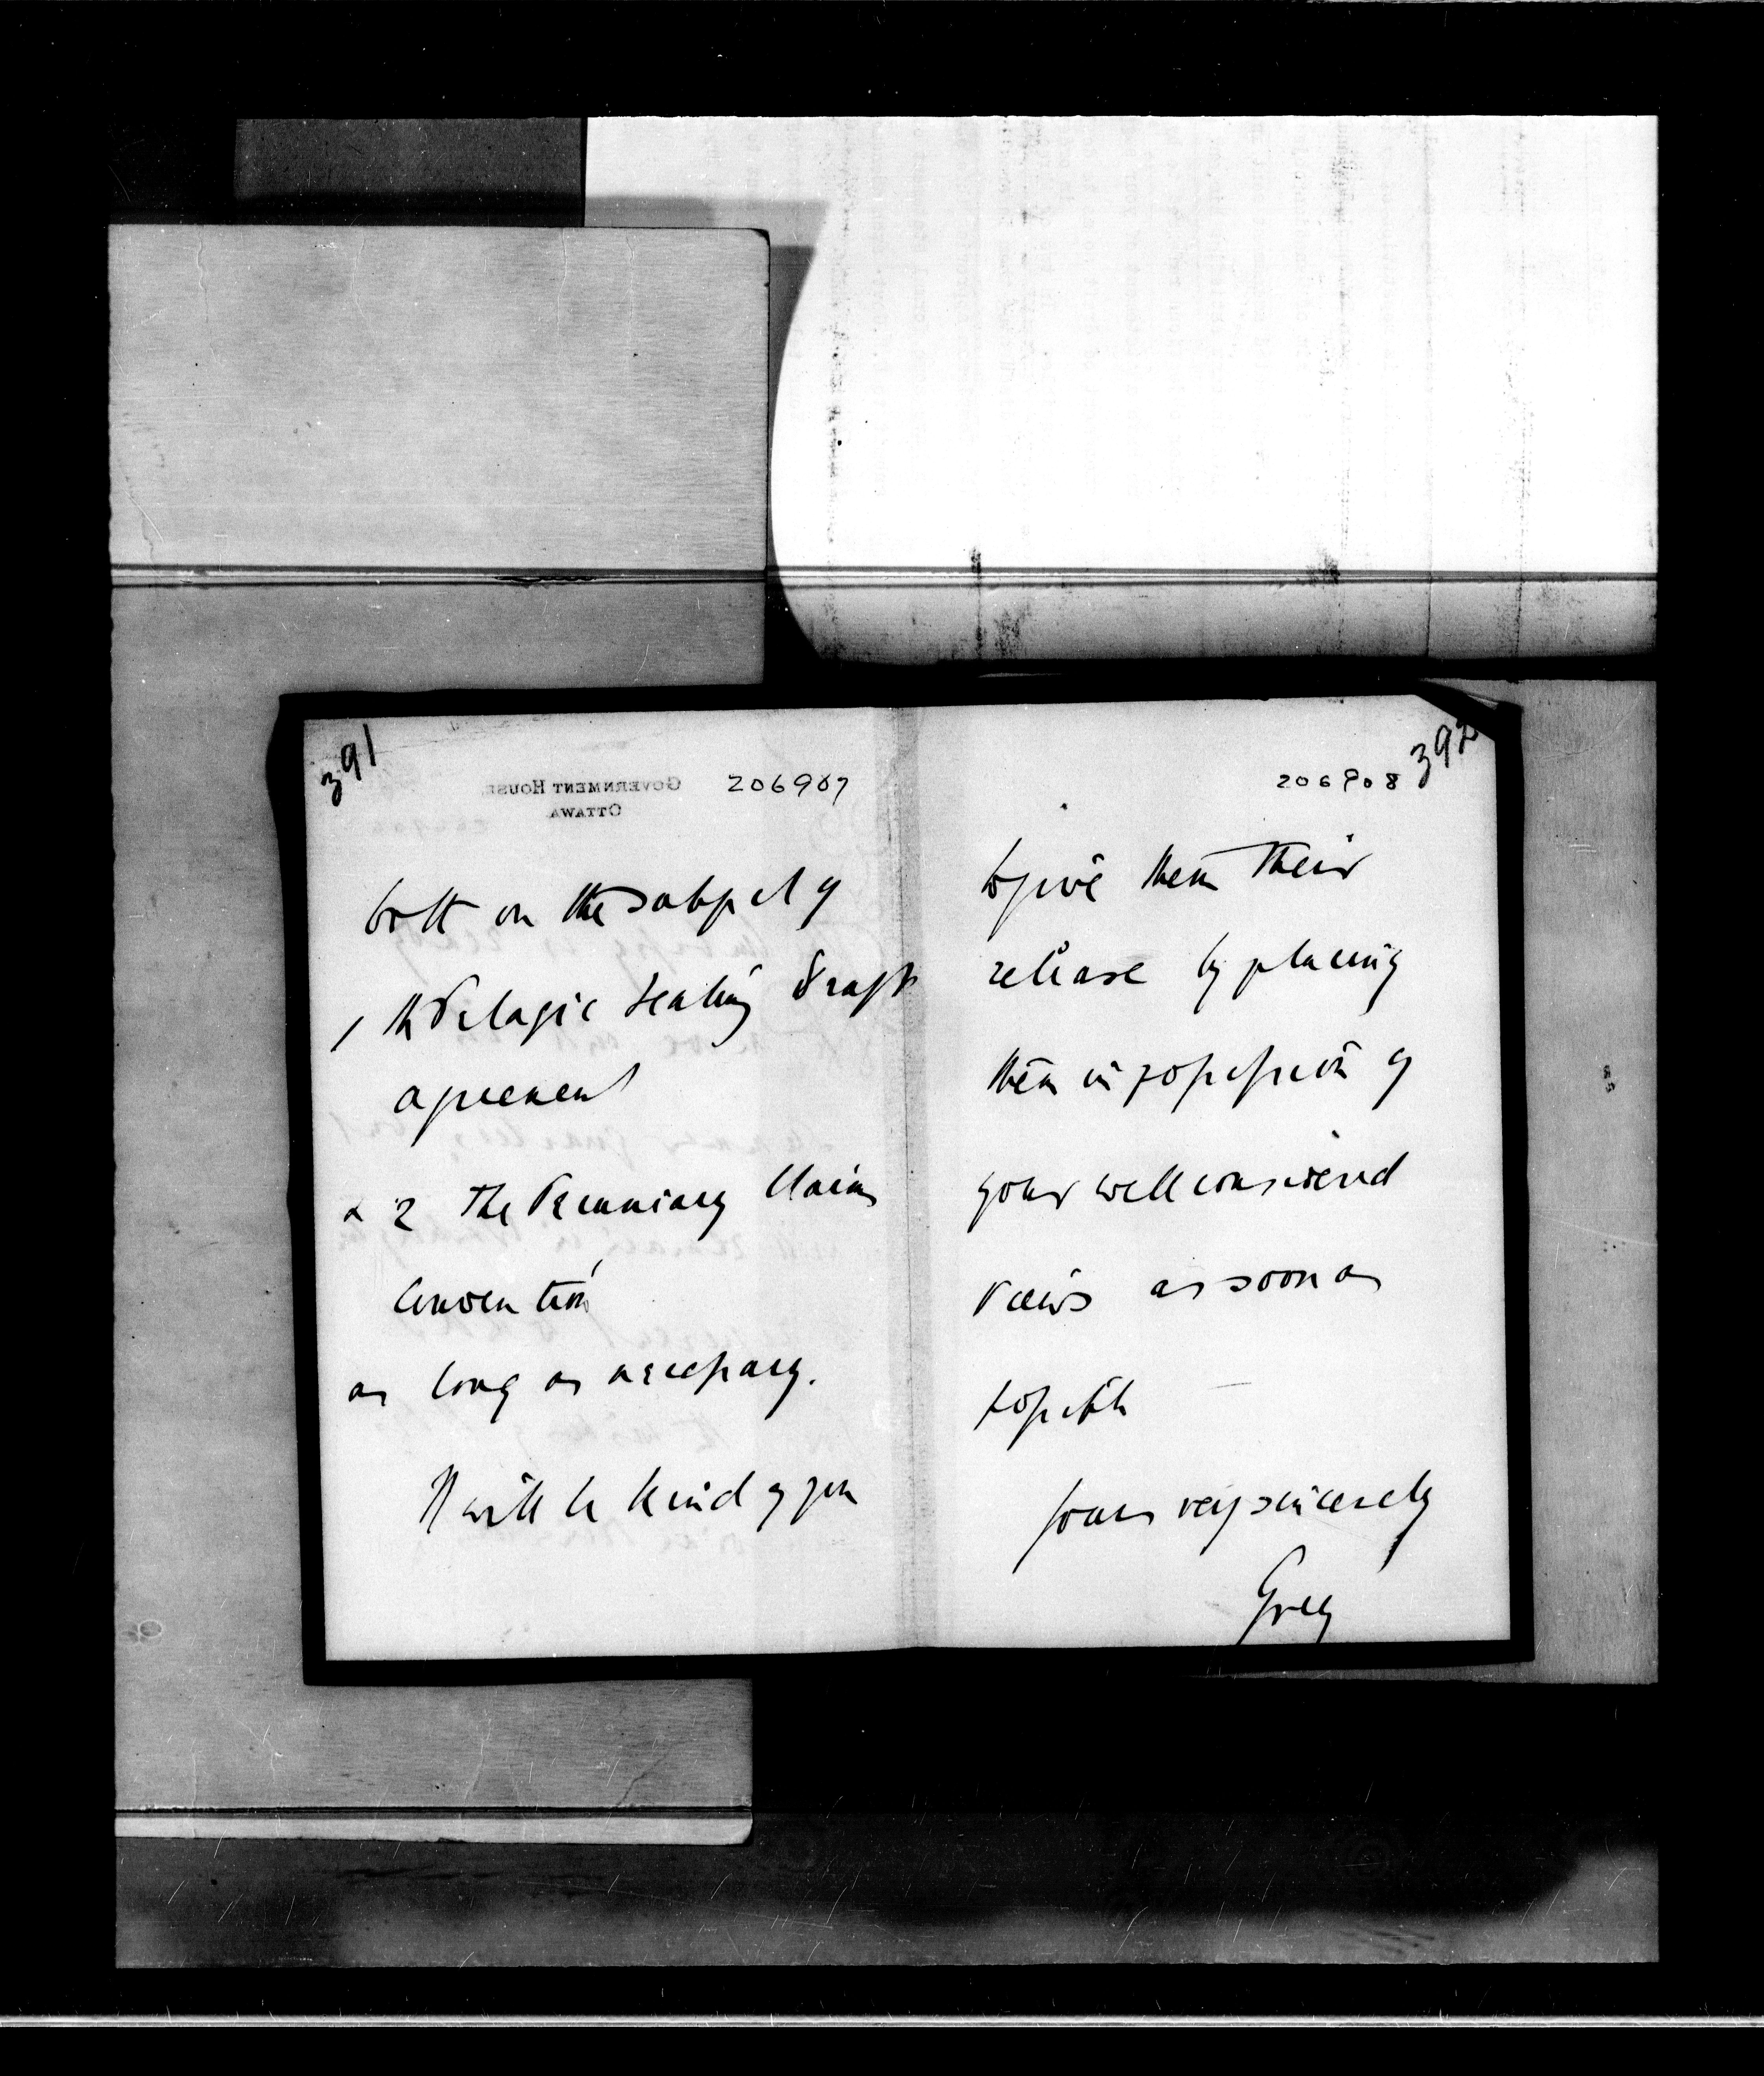 391
206907
GOVERNMENT HOUSE,
OTTAWA
both on the subject of
1 the Pelagic Sealing Draft
agreement
& 2 The Pecuniary Claims
Convention
as long as necessary.
It will be kind of you
392
206908
to give them their
release by placing
them in possession of
your well considered
views as soon as
possible
Yours very sincerely
Grey